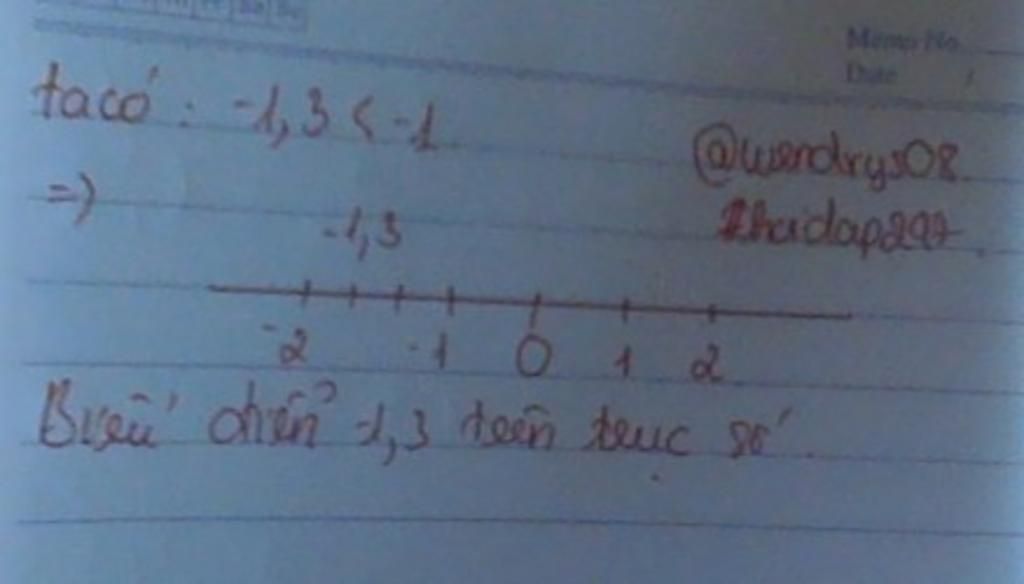 ta có : -1,3 < -1
Memo No.
Date /
@wendrys08.
=)
-1,3
-2 -1 0 1 2
-1,3 trên trục số